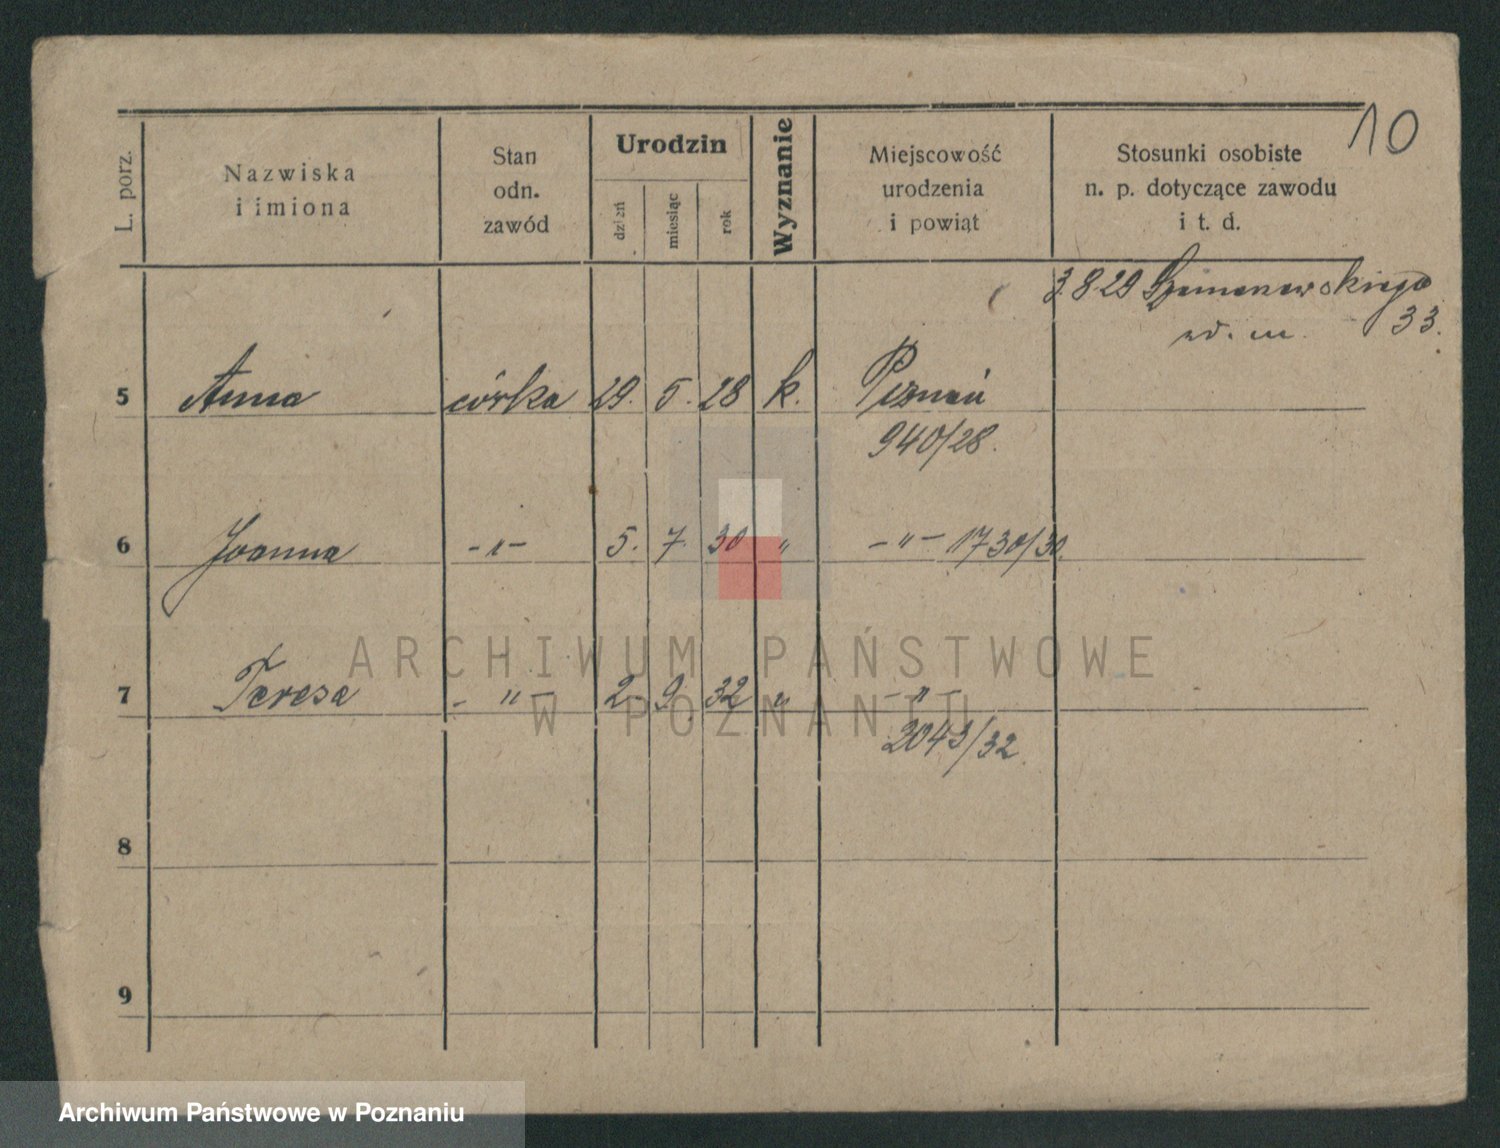 10
L. porz.
Nazwiska
i imiona
Stan
odn.
zawód
Urodzin
dzień
miesiąc
rok
Wyznanie
Miejscowość
urodzenia
i powiąt
Stosunki osobiste
n. p. dotyczące zawodu
i t. d.
3.8.29
33.
5 Anna córka 29. 5. 28 k. Poznań
940/28.
6 Joanna -"- 5. 7. 30 " -"- 1730/30.
7 Teresa -"- 2. 9. 32 " -"-
2043/32.
8
9
ARCHIWUM PAŃSTWOWE
W POZNANIU
Archiwum Państwowe w Poznaniu